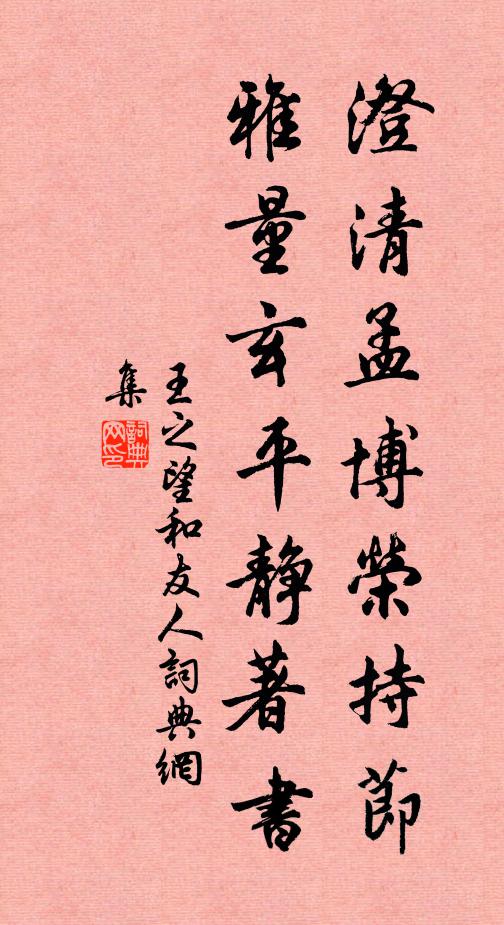 澄清孟博榮持節
雅量玄平静著書
王之望和友人詞典網
集
詞典
网印